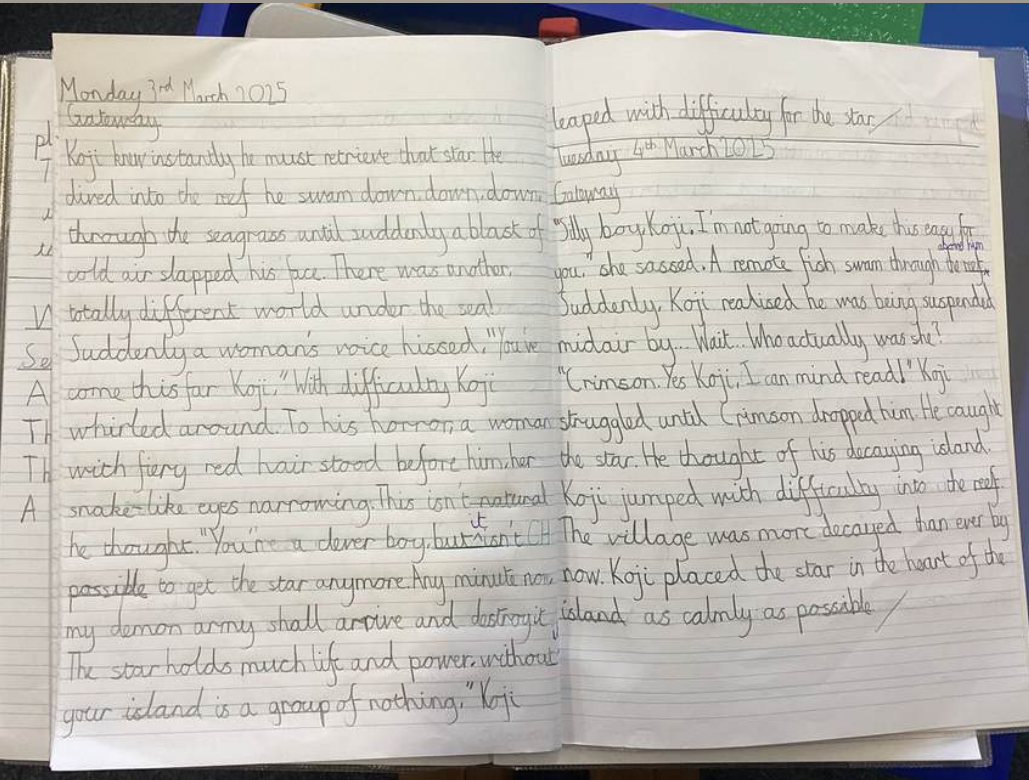 Monday 3rd March 2025
Gateway
Koji knew instantly he must retrieve that star. He
dived into the reef he swam down, down, down
through the seagrass until suddenly a blast of
cold air slapped his face. There was another,
totally different world under the sea!
Suddenly a woman's voice hissed, "You've
come this far Koji." With difficulty Koji
whirled around. To his horror, a woman
with fiery red hair stood before him, her
snake-like eyes narrowing. This isn't natural
he thought. "You're a clever boy, but it isn't CH
possible to get the star anymore. Any minute now,
my demon army shall arrive and destroy it
The star holds much life and power, without
your island is a group of nothing." Koji
leaped with difficulty for the star
Tuesday 4th March 2025
Gateway
"Silly boy Koji, I'm not going to make this easy for
you," she sassed. A remote fish swam through the reef above him
Suddenly, Koji realised he was being suspended
midair by... Wait... Who actually was she?
"Crimson. Yes Koji, I can mind read!" Koji
struggled until Crimson dropped him. He caught
the star. He thought of his decaying island.
Koji jumped with difficulty into the reef.
The village was more decayed than ever by
now. Koji placed the star in the heart of the
island as calmly as possible
pl
T
u
u
V
Se
A
Th
Th
A